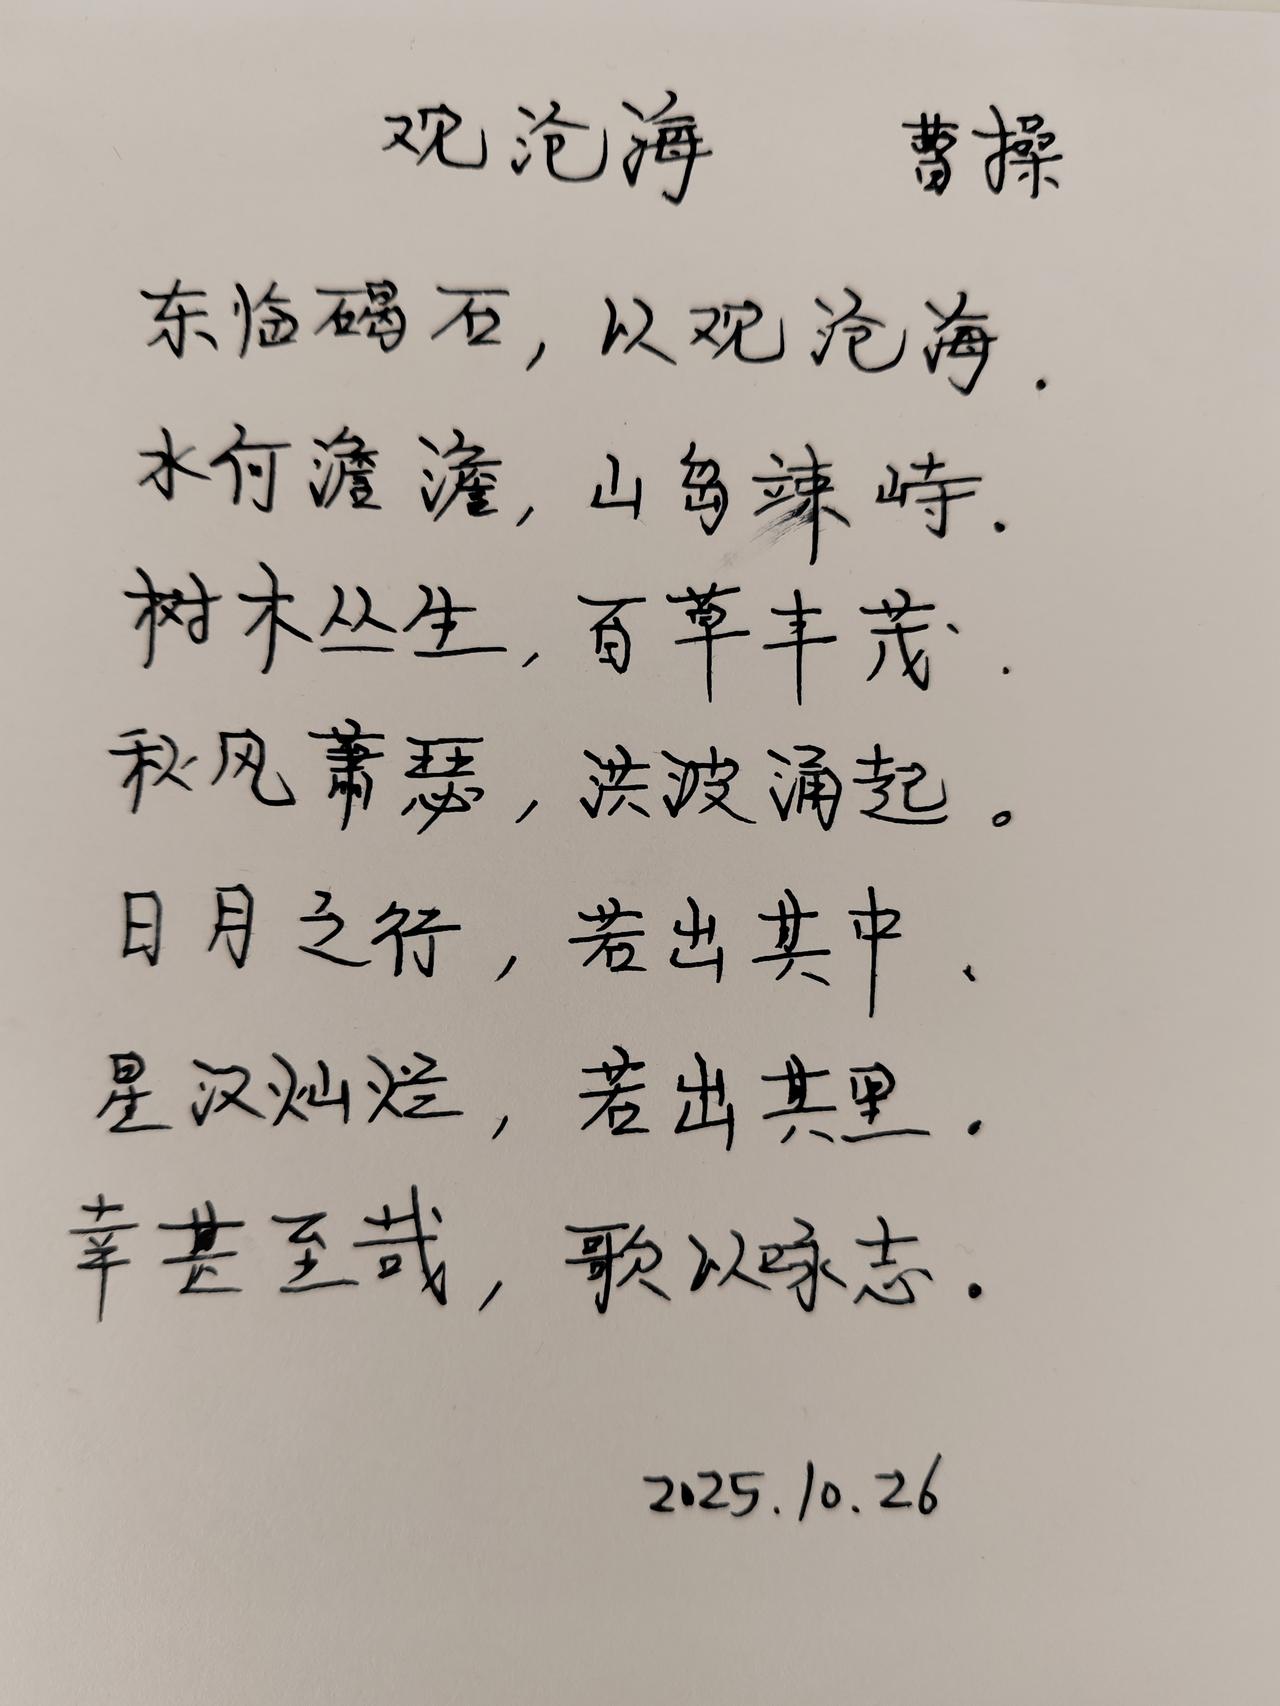 观沧海 曹操
东临碣石，以观沧海．
水何澹澹，山岛竦峙．
树木丛生，百草丰茂．
秋风萧瑟，洪波涌起。
日月之行，若出其中、
星汉灿烂，若出其里．
幸甚至哉，歌以咏志．
2025.10.26